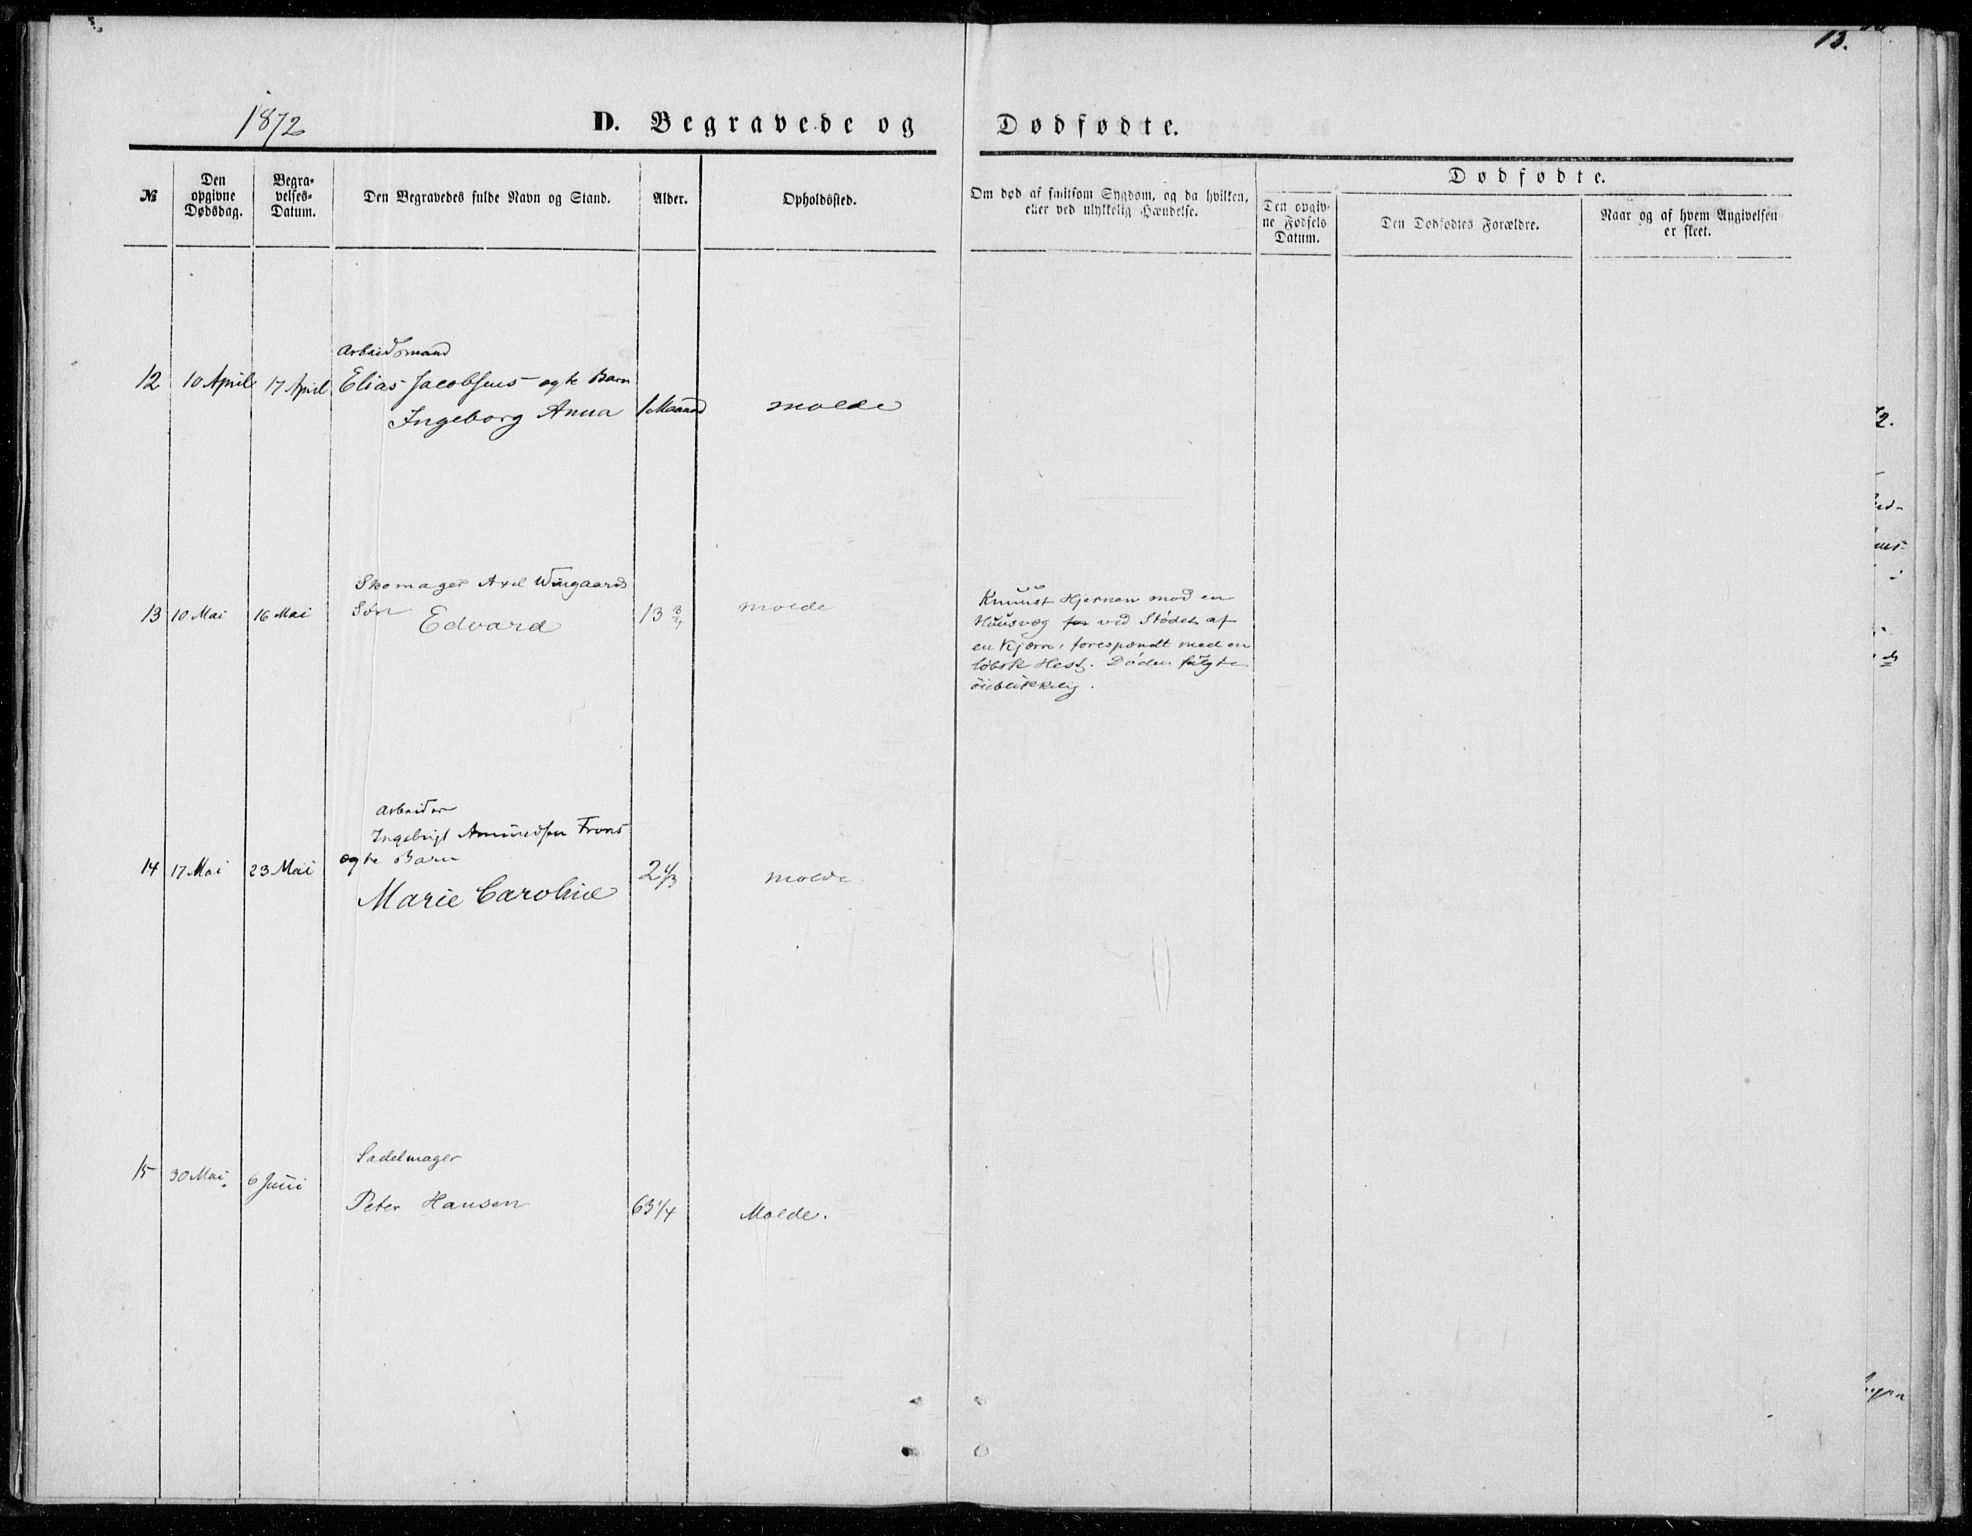 13.
1872
D. Begravede og Dødfødte.
№
Den opgivne Dødsdag.
Begravelses-Datum.
Den Begravedes fulde Navn og Stand.
Alder.
Opholdssted.
Om død af smitsom Sygdom, og da hvilken,
eller ved ulykkelig Hændelse.
Dødfødte.
Den opgivne Fødsels Datum.
Den Dødfødtes Forældre.
Naar og af hvem Angivelsen
er skeet.
Arbeidsmand
12 10 April 17 April Elias Jacobsens ægte Barn
Ingeborg Anna 1 Maaned Molde
Skomager Axel Wingaards
13 10 Mai 16 Mai Søn Edvard 13 3/4 Molde
Knuust Hjernen mod en
Huusvæg for ved Stødet af
en Kjærre, forespændt med en
løbsk Hest. Døden fulgte
øieblikkelig.
Arbeider
Ingebrigt Amundsen
ægte Barn
14 17 Mai 23 Mai Marie Caroline 2 1/3 Molde
Sadelmager
15 30 Mai 6 Juni Peter Hansen 63 1/4 Molde.